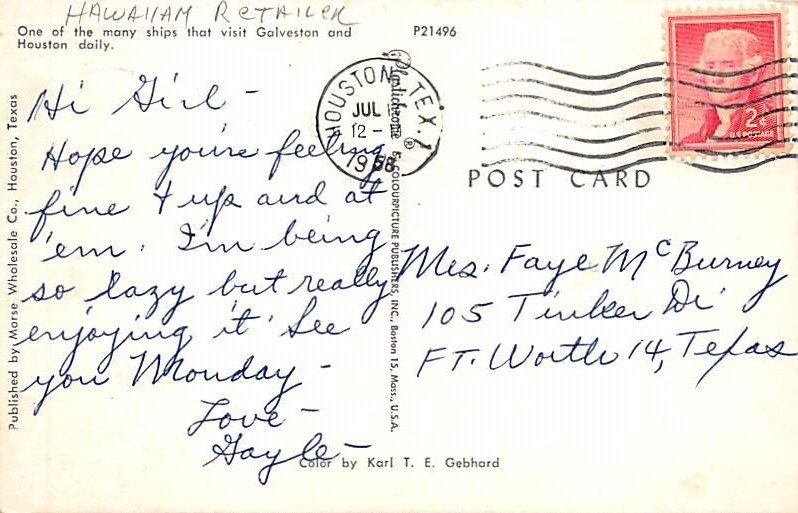 HAWAIIAN RETAILER
One of the many ships that visit Galveston and
Houston daily.
P21496
Hi Girl –
Hope you're feeling
fine & up and at
'em. I'm being
so lazy but really
enjoying it. See
you Monday –
Love –
Gayle –
HOUSTON, TEX.
JUL
12 –
1958
2¢
U.S. POSTAGE
POST CARD
Mrs. Faye McBurney
105 Tinker Dr
FT. Worth 14, Texas
Published by Morse Wholesale Co., Houston, Texas
Plastichrome ® by COLOURPICTURE PUBLISHERS, INC., Boston 15, Mass., U.S.A.
Color by Karl T. E. Gebhard